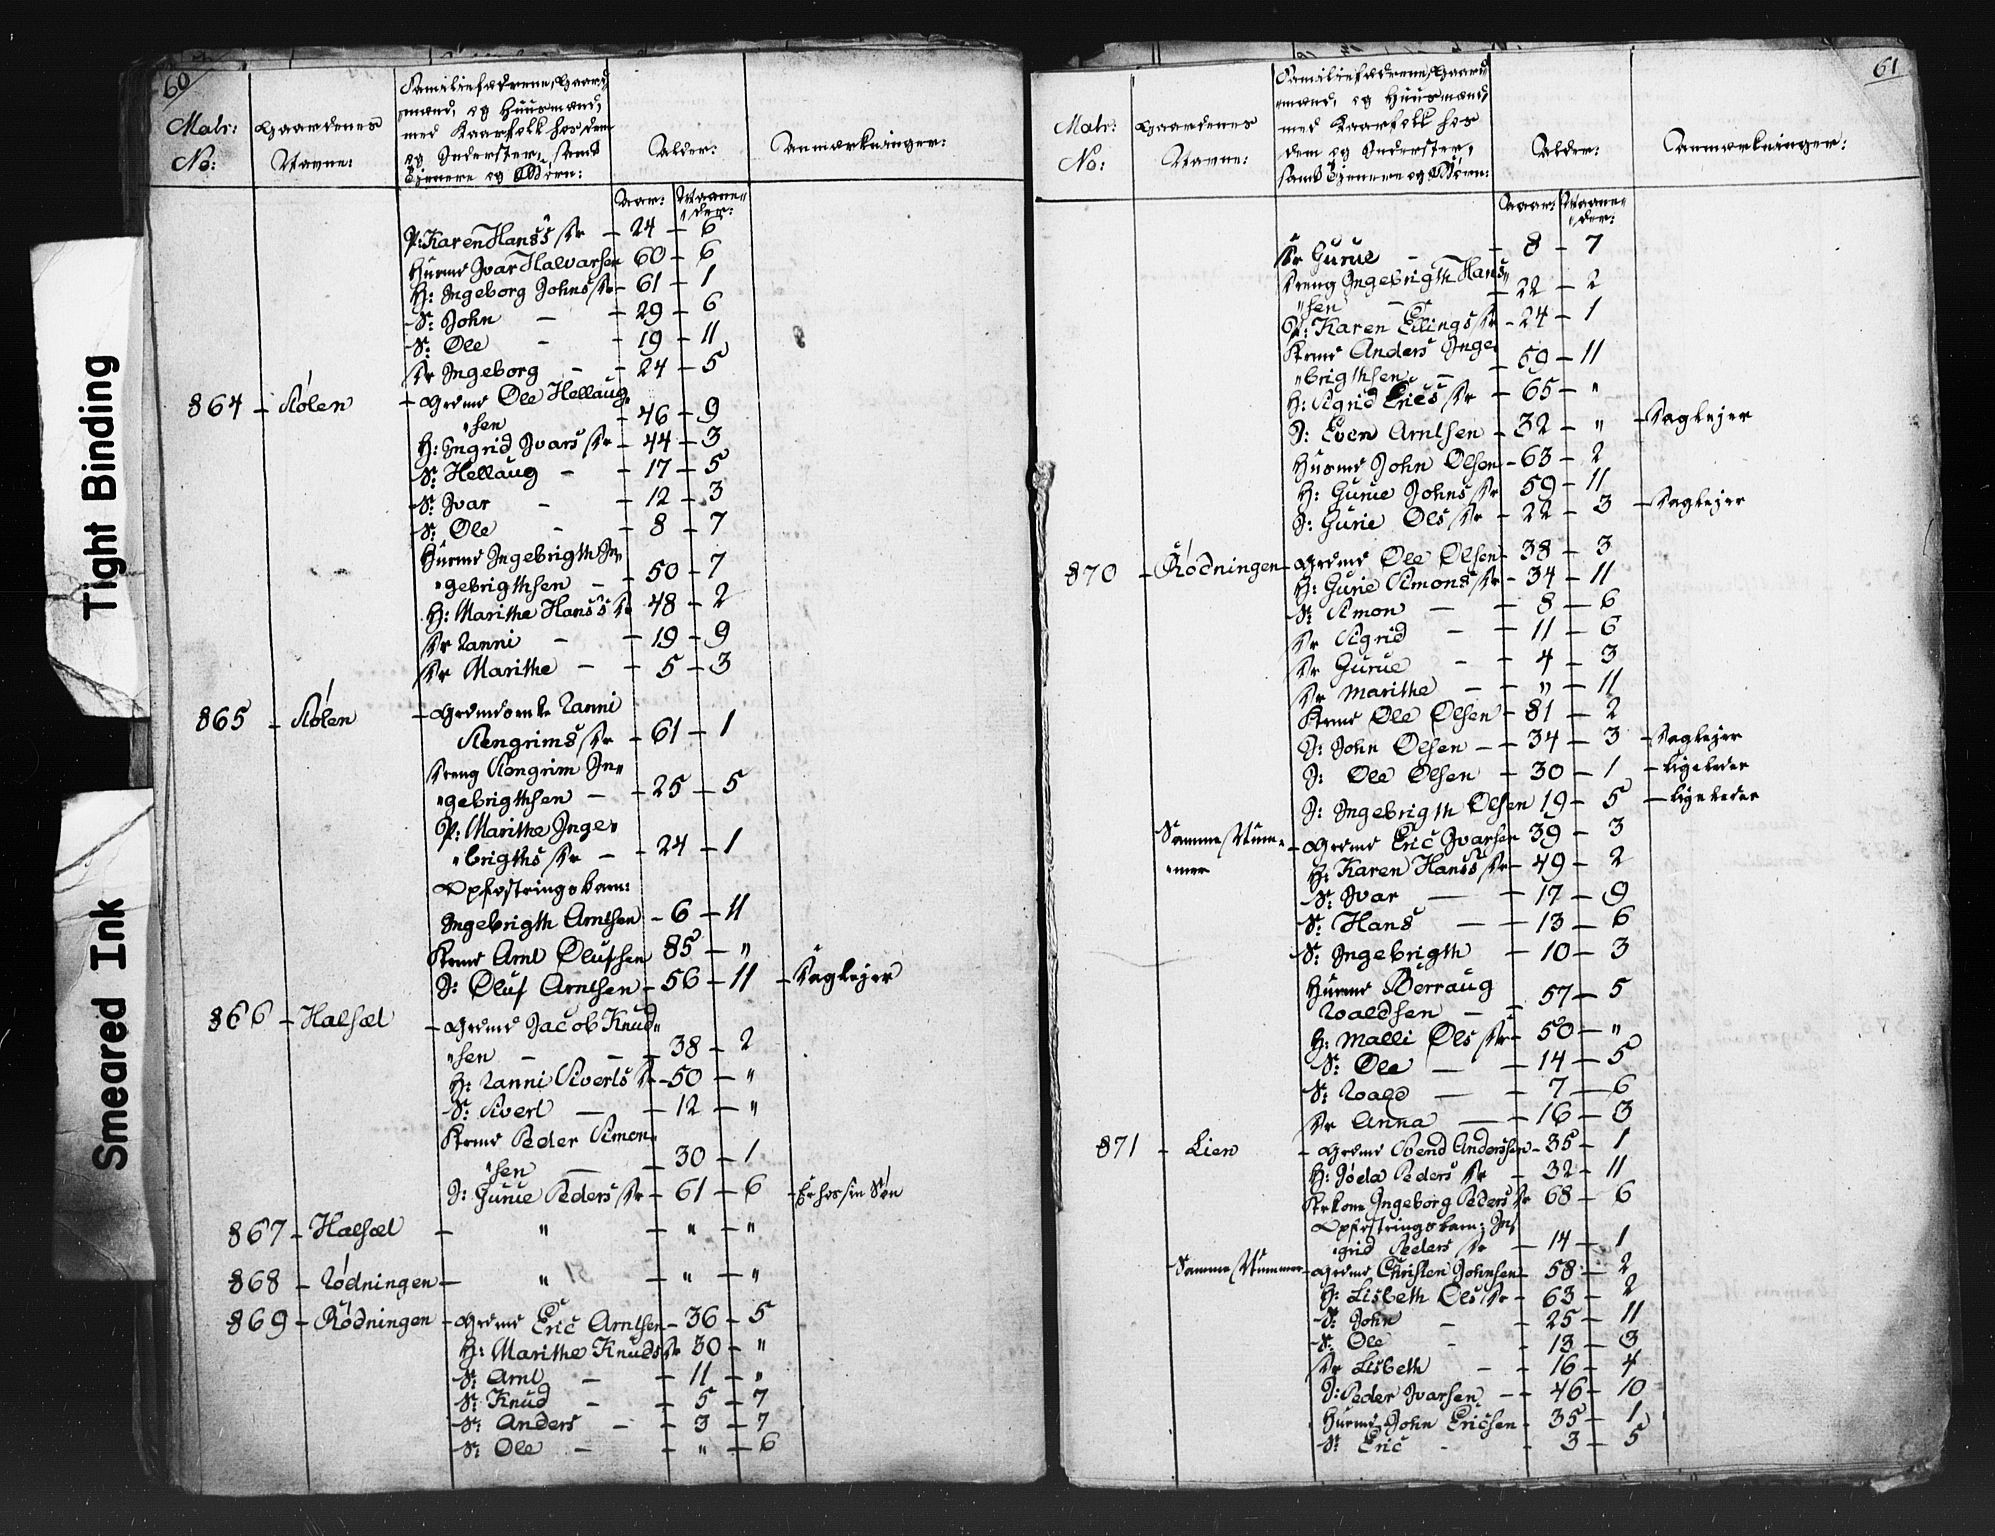 60
Matr: No:
Gaardenes Navne:
Familiefædrene, Gaard
mænd, og Huusmænd,
med Kaarfolk hos dem
og Inderster, samt
Tjenere og Børn:
Alder:
Anmærkninger:
Aar: Maane-
der:
P: Karen Hanss Dr – 24 – 6
Husmd Ivar Halvarsen 60 – 6
H: Ingeborg Johns Dr – 61 – 1
S: John – – 29 – 6
S: Ole – – 19 – 11
Dr Ingeborg – – 24 – 5
864 – Stølen – Grdmd Ole Hellaug-
sen – 46 – 9
H: Ingrid Ivars Dr – 44 – 3
S: Hellaug – – 17 – 5
S: Ivar – – 12 – 3
S: Ole – – 8 – 7
Husmd Ingebrigth In-
gebrigthsen – – 50 – 7
H: Marithe Hanss Dr 48 – 2
Dr Ranni – – 19 – 9
Dr Marithe – – 5 – 3
865 – Stølen – Grdmdsenke Ranni
Stengrims Dr – 61 – 1
Dreng Stengrim In-
gebrigthsen – – 25 – 5
P: Marithe Inge-
brigths Dr – – 24 – 1
Opfostringsbarn:
Ingebrigth Arntsen – 6 – 11
Krmd Arnt Olufsen 85 – "
I: Oluf Arntsen – 56 – 11 – Dagleyer
866 – Halsæt – Grdmd Jacob Knud-
sen – – 38 – 2
H: Ranni Siverts Dr – 50 – "
S: Sivert – – 12 – "
Krmd Peder Simon-
sen – – 30 – 1
I: Gurue Peders Dr – 61 – 6 – Er hos sin Søn
867 – Halsæt – " – " – "
868 – Rødningen – " – " – "
869 – Rødningen – Grdmd Eric Arntsen – 36 – 5
H: Marithe Knuds Dr 30 – "
S: Arnt – – 11 – "
S: Knud – – 5 – 7
S: Anders – – 3 – 7
S: Ole – – " – 6
61
Matr: No:
Gaardenes Navne:
Familiefædrene, Gaard
mænd, og Huusmænd,
med Kaarfolk hos
dem og Inderster,
samt Tjenere og Børn:
Alder:
Anmærkninger:
Aar: Maane-
der:
Dr Gurue – – 8 – 7
Dreng Ingebrigth Hans-
sen – – 22 – 2
P: Karen Ellings Dr – 24 – 1
Krmd Anders Inge-
brigthsen – – 69 – 11
H: Sigrid Erics Dr – 65 – "
I: Even Arntsen – 32 – " – Dagleyer
Husmd John Olsen – 63 – 2
H: Gurue Johns Dr 59 – 11
I: Gurie Ols Dr – 22 – 3 – Dagleyer
870 – Rødningen – Grdmd Ole Olsen – 38 – 3
H: Gurie Simons Dr – 34 – 11
S: Simon – – 8 – 6
Dr Sigrid – – 11 – 6
Dr Gurue – – 4 – 3
Dr Marithe – – " – 11
Krmd Ole Olsen – 81 – 2
I: John Olsen – – 34 – 3 – Dagleyer
I: Ole Olsen – 30 – 1 – ligeleder
I: Ingebrigth Olsen 19 – 5 – ligeleder
Samme Num-
mer – Grdmd Eric Ivarsen 39 – 3
H: Karen Hanss Dr – 49 – 2
S: Ivar – – 17 – 9
S: Hans – – 13 – 6
S: Ingebrigth – 10 – 3
Husmd Berraug
Roaldsen – – 57 – 5
H: Malli Ols Dr – 50 – "
S: Ole – – 14 – 5
S: Roald – – 7 – 6
Dr Anna – – 16 – 3
871 – Lien – Grdmd Svend Anderssen – 35 – 1
H: Jøda Peders Dr – 32 – 11
Krkone Ingeborg Peders Dr 68 – 6
Opfostringsbarn: In-
grid Peders Dr – 14 – 1
Samme Nummer – Grdmd Christen Johnsen – 58 – 2
H: Lisbeth Ols Dr – 63 – 2
S: John – – 25 – 11
S: Ole – – 13 – 3
Dr Lisbeth – – 16 – 4
I: Peder Ivarsen – – 46 – 10
Husmd John Ericsen – 35 – 1
S: Eric – – 3 – 5
Tight Binding
Smeared Ink